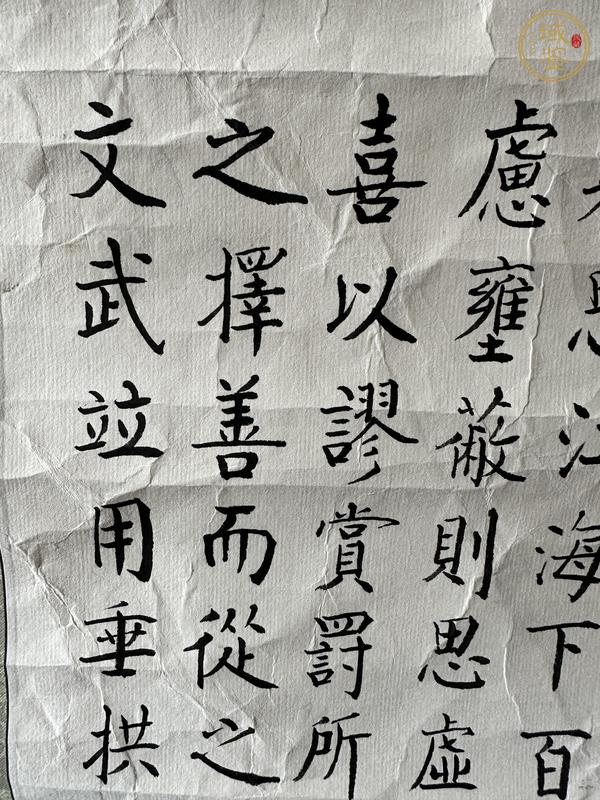 江海下百
慮壅蔽則思虛
喜以謬賞罰所
之擇善而從之
文武竝用垂拱